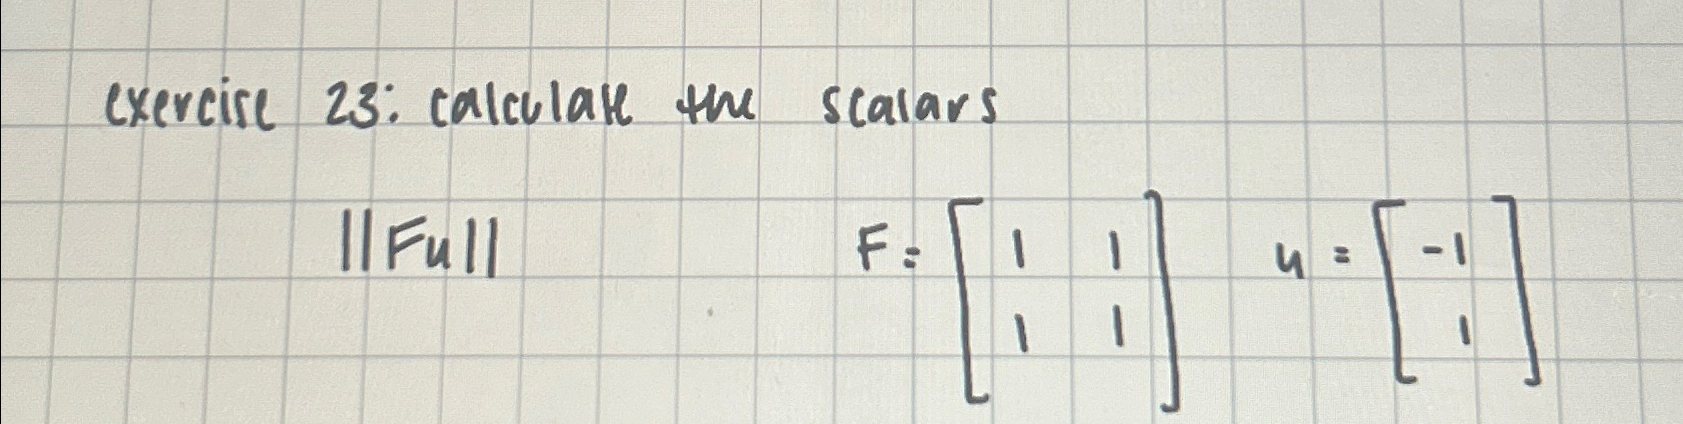 exercise 23: calculate the scalars
||Fu|| F = [ 1 1 u = [ -1
1 1 ] 1 ]